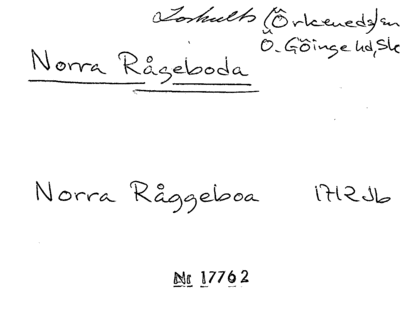 Loshults (Örkeneds) sn
Ö. Göinge hd, Sk
Norra Rågeboda
Norra Råggeboa 1712 Jb
Nr 17762